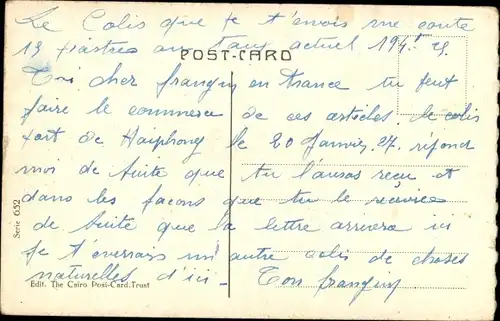 Le Colis que je t'envois me coute
13 piastres au taux actuel 194f 25
POST-CARD
Toi cher frangin en France tu peut
faire le commerce de ces articles. le colis
part de Haiphong le 20 Janvier 27. répond
moi de suite que tu l'auras reçu et
dans les façons que tu le reçoives
de suite que la lettre arrivera ici
je t'enverrais un autre colis de choses
naturelles d'ici - Ton frangin
Serie 652
Edit. The Cairo Post-Card.Trust